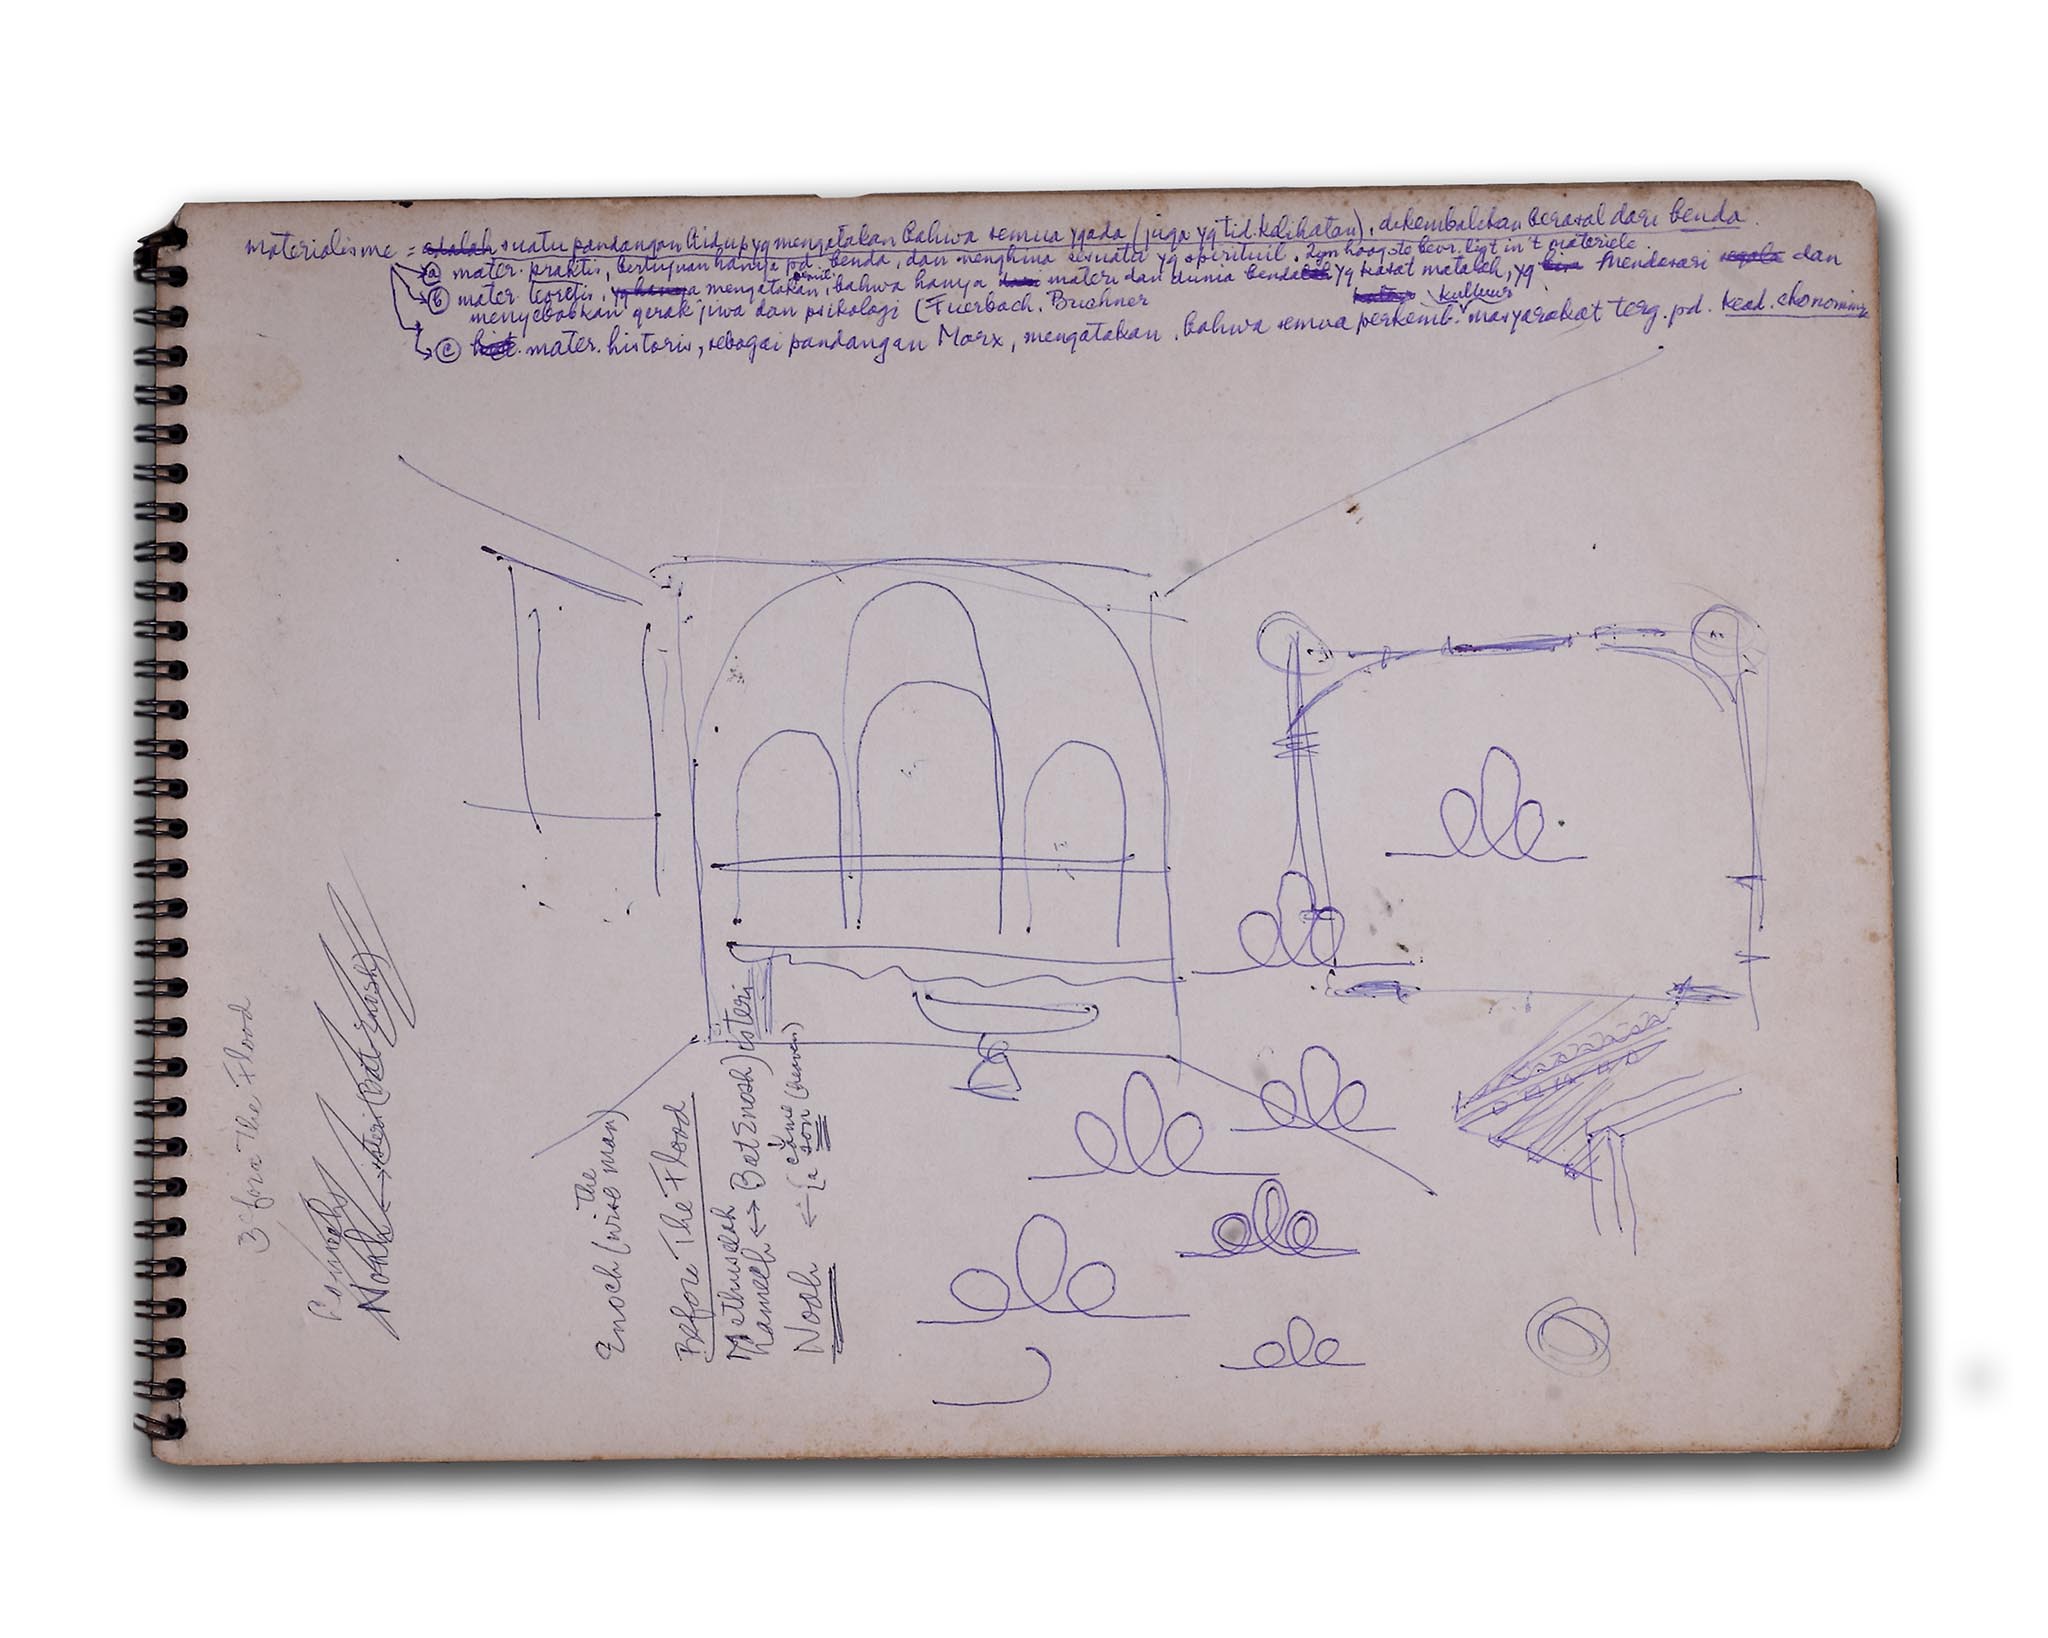 materialisme = adalah suatu pandangan hidup yg mengatakan bahwa semua yg ada (juga yg tid. kelihatan), dikembalikan berasal dari benda.
(a) mater. praktis, bertujuan hanya pd. benda, dan menghina sesuatu yg spirituil. Zijn hoogste bevr. ligt in 't materiele
(b) mater. teoretis, yg hanya mengatakan, bahwa hanya materi dan dunia benda yg kasat matalah, yg mendasari segala dan
menyebabkan gerak jiwa dan psikologi (Fuerbach. Buchner
(c) hist. mater. historis, sebagai pandangan Marx, mengatakan bahwa semua perkemb. kultuur masyarakat terg. pd. kead. ekonominy
Before The Flood
Noah isteri (Bat Enosh)
Enoch (the wise man)
Before The Flood
Methusalah
Lamech ↔ Bat Enosh) isteri
Noah ← (a came son (heaven)